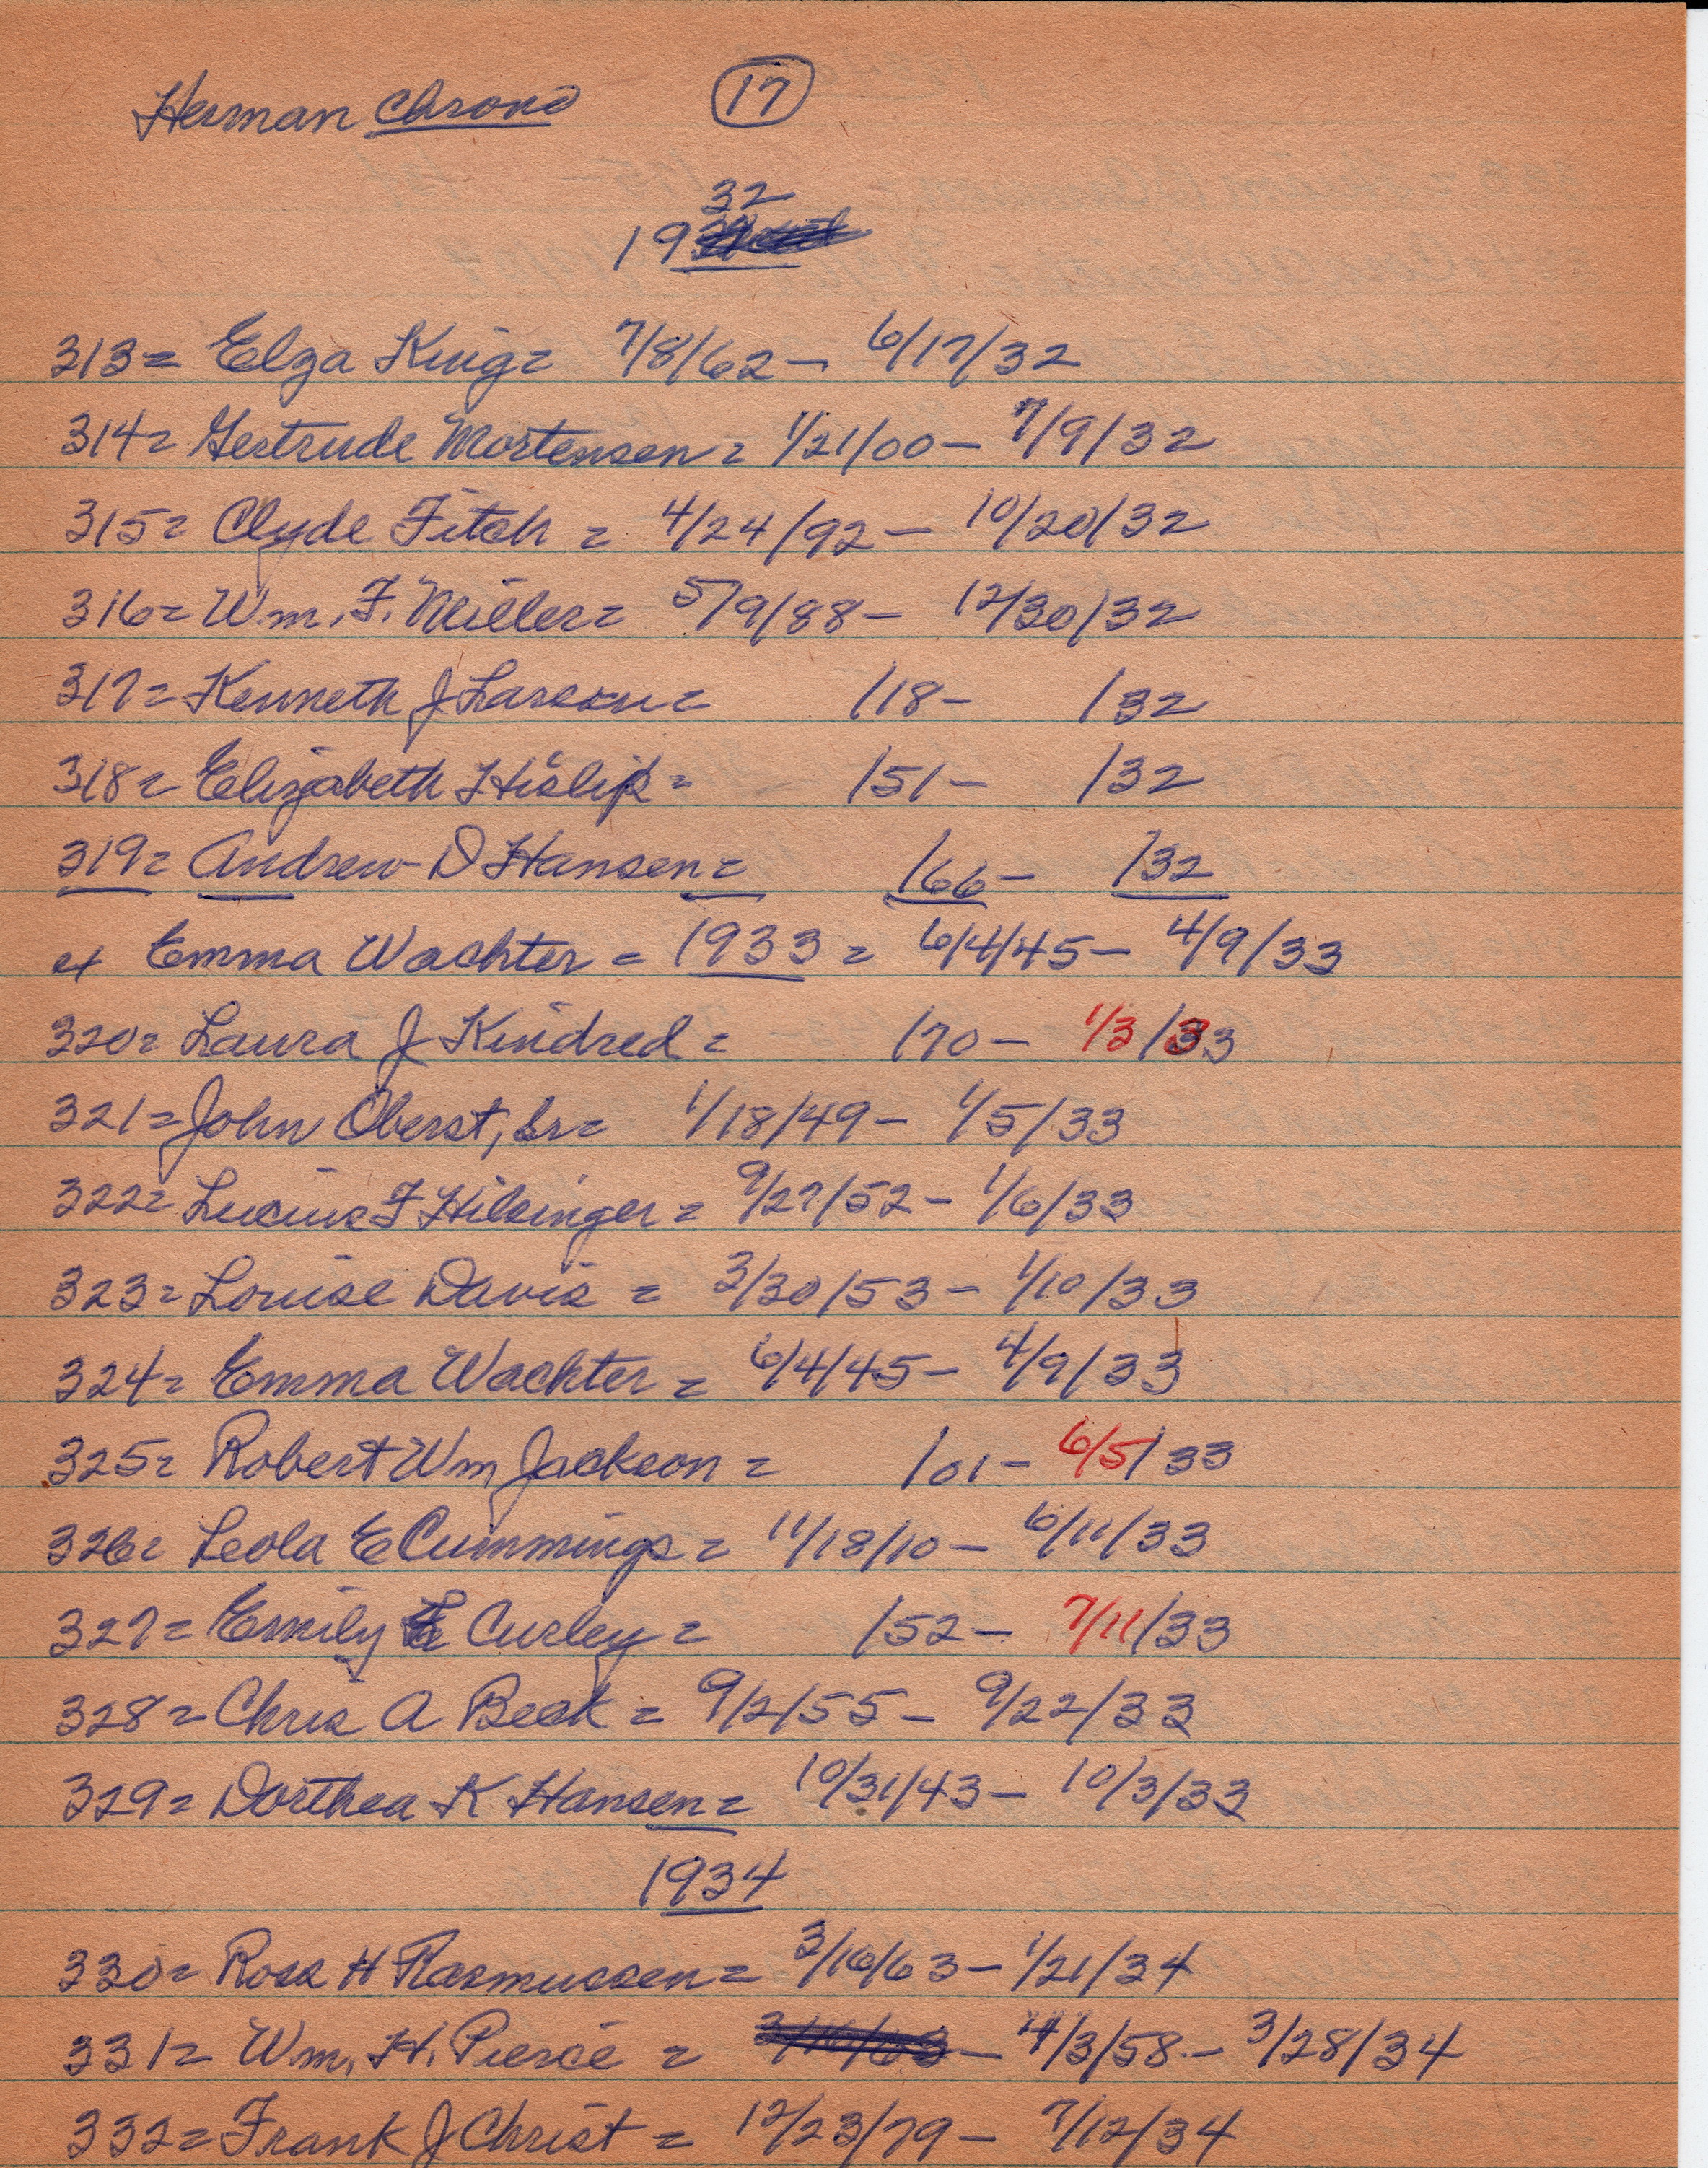 Herman Chrono 17
32
19
313= Elza King= 7/8/62- 6/17/32
314= Gertrude Mortensen= 1/21/00- 7/9/32
315= Clyde Fitch = 4/24/92- 10/20/32
316= Wm. F. Miller= 5/9/88- 12/30/32
317= Kenneth J Larson= /18- /32
318= Elizabeth Hislip= /51- /32
319= Andrew D Hansen= /66- /32
Emma Wachter = 1933 = 6/4/45- 4/9/33
320= Laura J Kindred = /70- 1/3/33
321= John Oberst, Sr= 1/18/49- 1/5/33
322= Lucius F Hilsinger = 9/27/52- 1/6/33
323= Louise Davis = 3/30/53- 1/10/33
324= Emma Wachter = 6/4/45- 4/9/33
325= Robert Wm Jackson = /01- 6/5/33
326= Leola E Cummings = 11/18/10- 6/11/33
327= Emily Curley = /52- 7/11/33
328= Chris A Beck = 9/2/55- 9/22/33
329= Dorthea K Hansen= 10/31/43- 10/3/33
1934
330= Ross H Rasmussen= 3/16/63- 1/21/34
331= Wm. H. Pierce = 3/16/63 - 4/3/58- 3/28/34
332= Frank J Christ = 12/23/79- 7/12/34